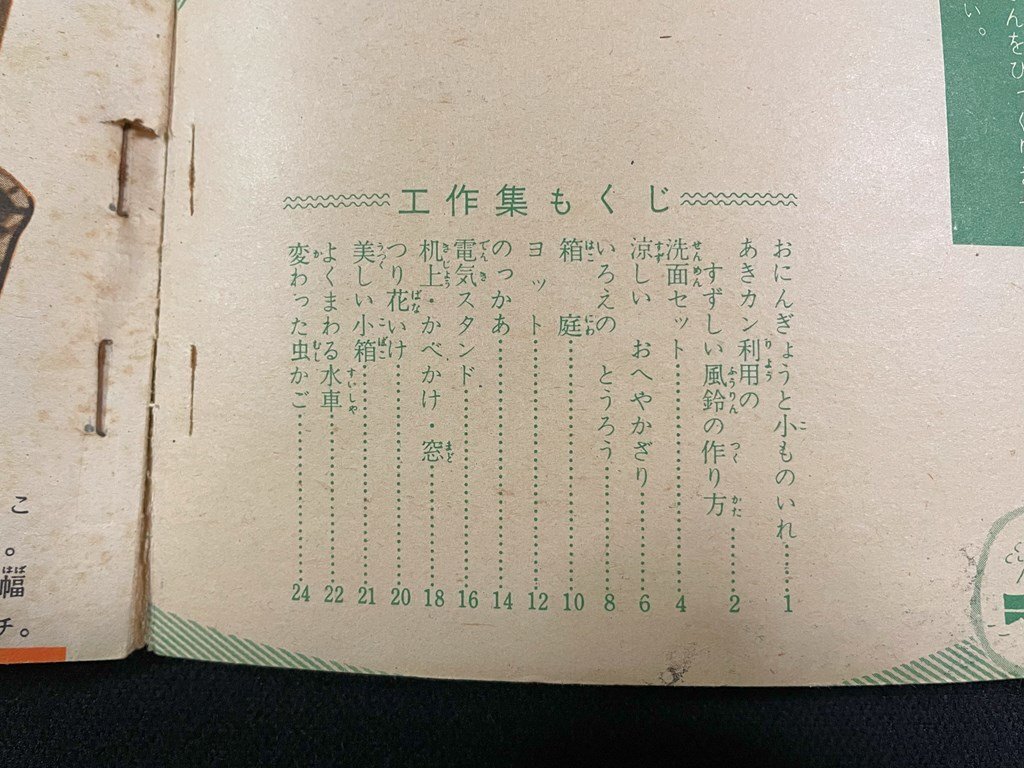 工作集もくじ
おにんぎょうと小ものいれ 1
あきカン利用の
すずしい風鈴の作り方 2
洗面セット 4
涼しい おへやかざり 6
いろえの とうろう 8
箱庭 10
ヨット 12
のっかあ 14
電気スタンド 16
机上・かべかけ・窓 18
つり花いけ 20
美しい小箱 21
よくまわる水車 22
変わった虫かご 24
い。
こ
。
幅
チ。